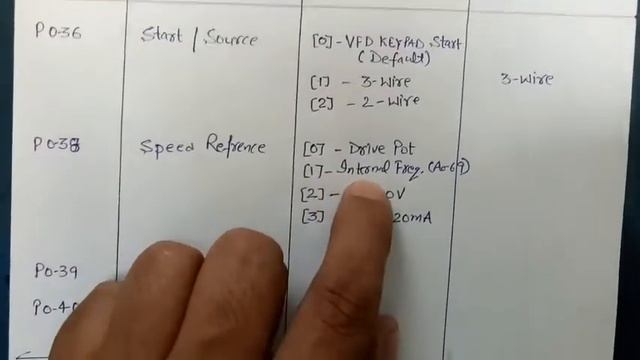 P0-36 Start / Source [0] - VFD KEYPAD Start
(Default)
[1] - 3-wire 3-wire
[2] - 2-wire
P0-38 Speed Refrence [0] - Drive Pot
[1] - Internal Freq. (A0-69)
[2] - 0V
[3] 20mA
P0-39
P0-4